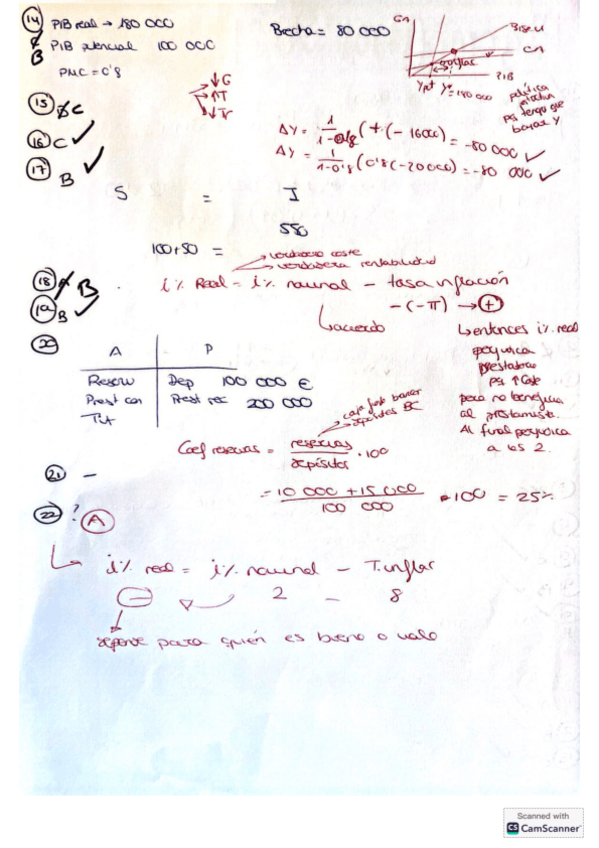 14 PIB real → 180 000 Brecha = 80 000
PIB potencial 100 000
B
PMC = 0'8
↓G
↑T
↓Tr
GA
Bisec
GA
PIB
Ypot Y* = 180 000
política
pq tengo que
bajar Y
15 C
16 C ✓
17 B ✓
ΔY = 1/1-0'8 (+(-16000) = -80 000 ✓
ΔY = 1/1-0'8 (0'8(-20000) = -80 000 ✓
S = I
550
100+50 =
→ verdadero coste
→ verdadera rentabilidad
18 B
i% Real = i% nominal - tasa inflación
19 B ✓
-(-π) → +
acuerdo
↳ entonces i% real
perjudica
prestatario
pq ↑ coste
pero no beneficia
al prestamista.
Al final perjudica
a los 2.
20
A P
Reserv Dep 100 000 €
Prest con Prest rec 200 000
caja fuerte banco
depósitos BC
Coef reservas = reservas/depósitos · 100
= 10 000 + 15 000/100 000 · 100 = 25%
21 -
22 ? A
i% real = i% nominal - T.inflac
- 2 - 8
depende para quién es bueno o malo
Scanned with
CS CamScanner